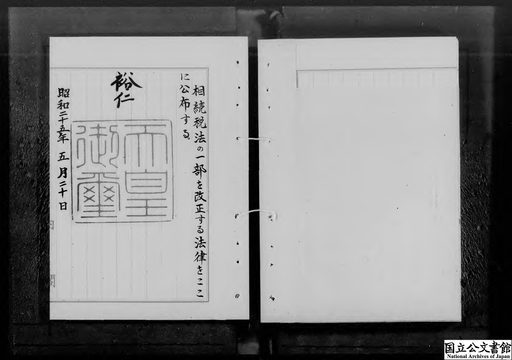 相続税法の一部を改正する法律をここ
に公布する
裕仁
天皇
御璽
昭和二十五年五月二十日
国立公文書館
National Archives of Japan